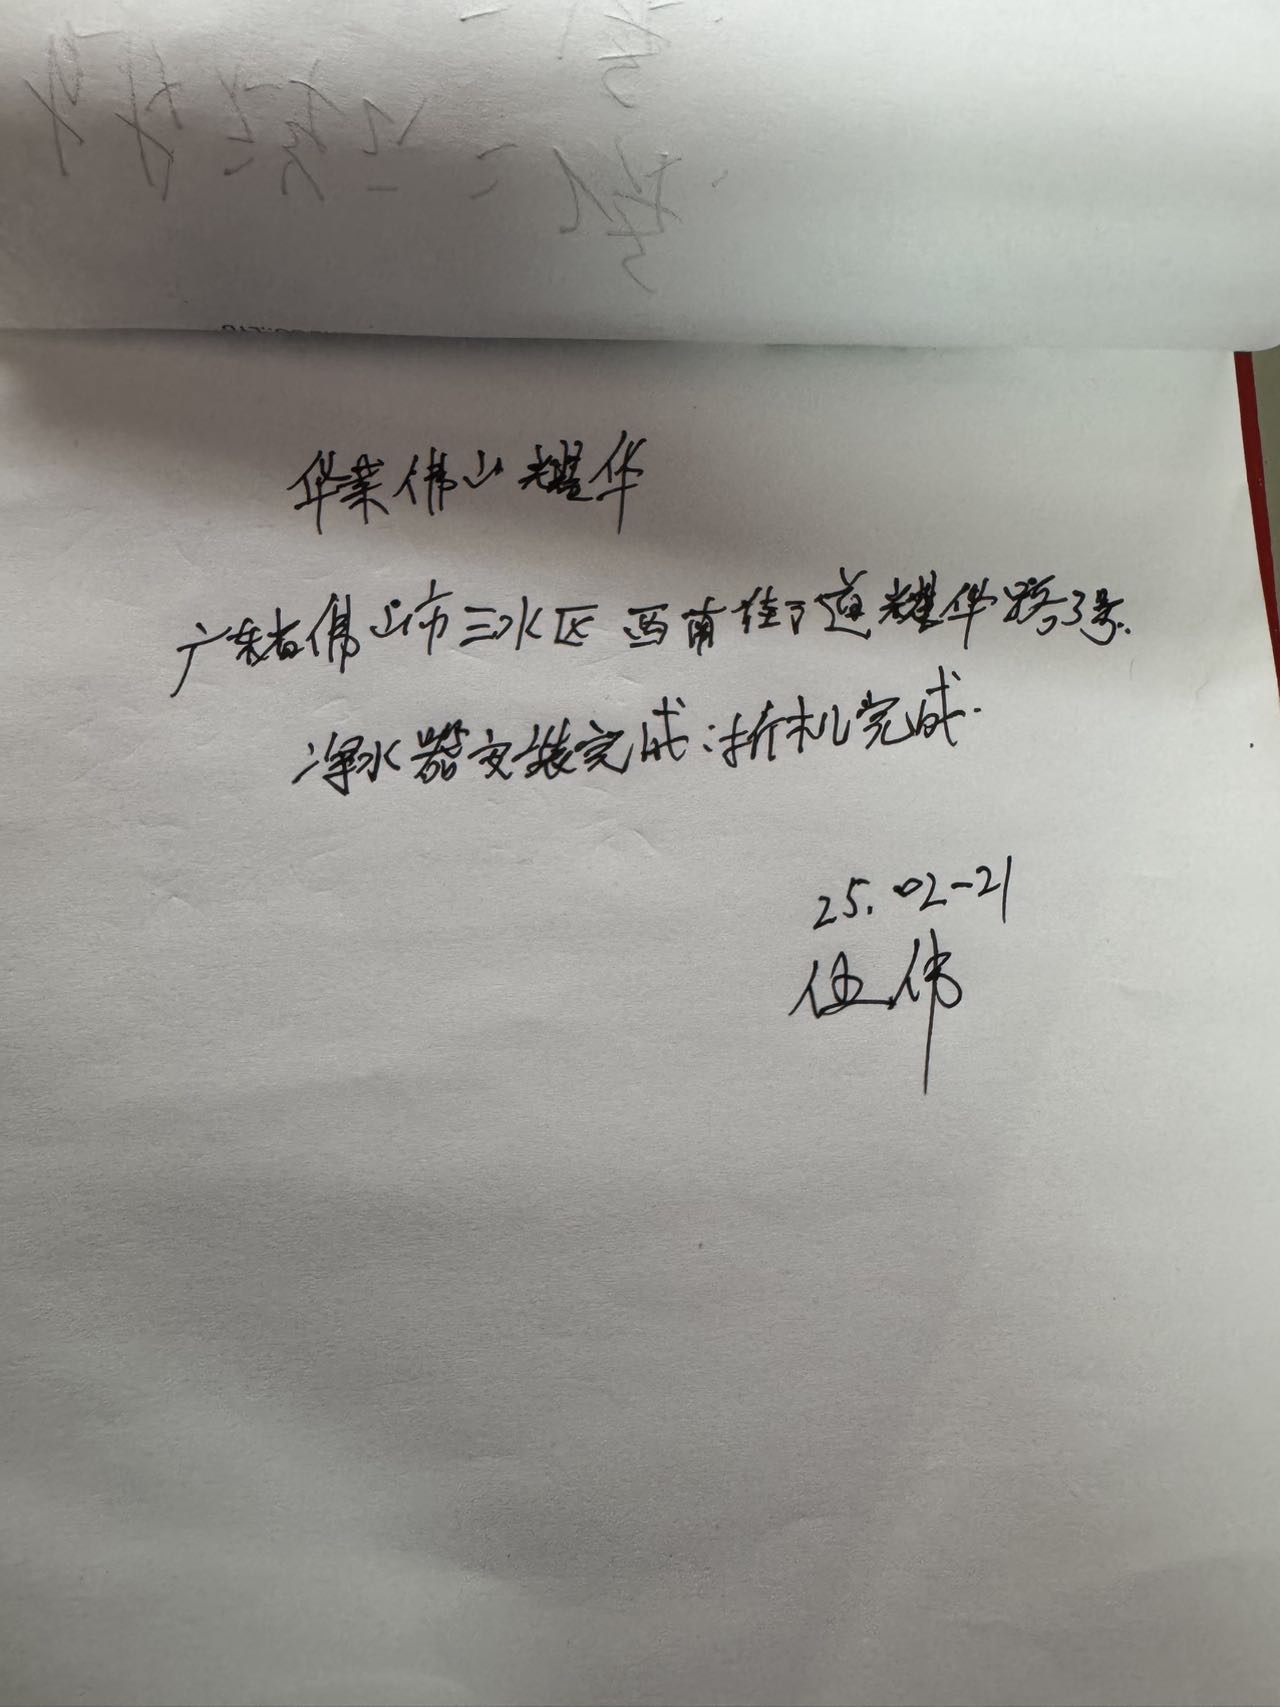 华莱佛山耀华
广东省佛山市三水区西南街道耀华路3号.
净水器安装完成;拆机完成.
25.02-21
伍伟